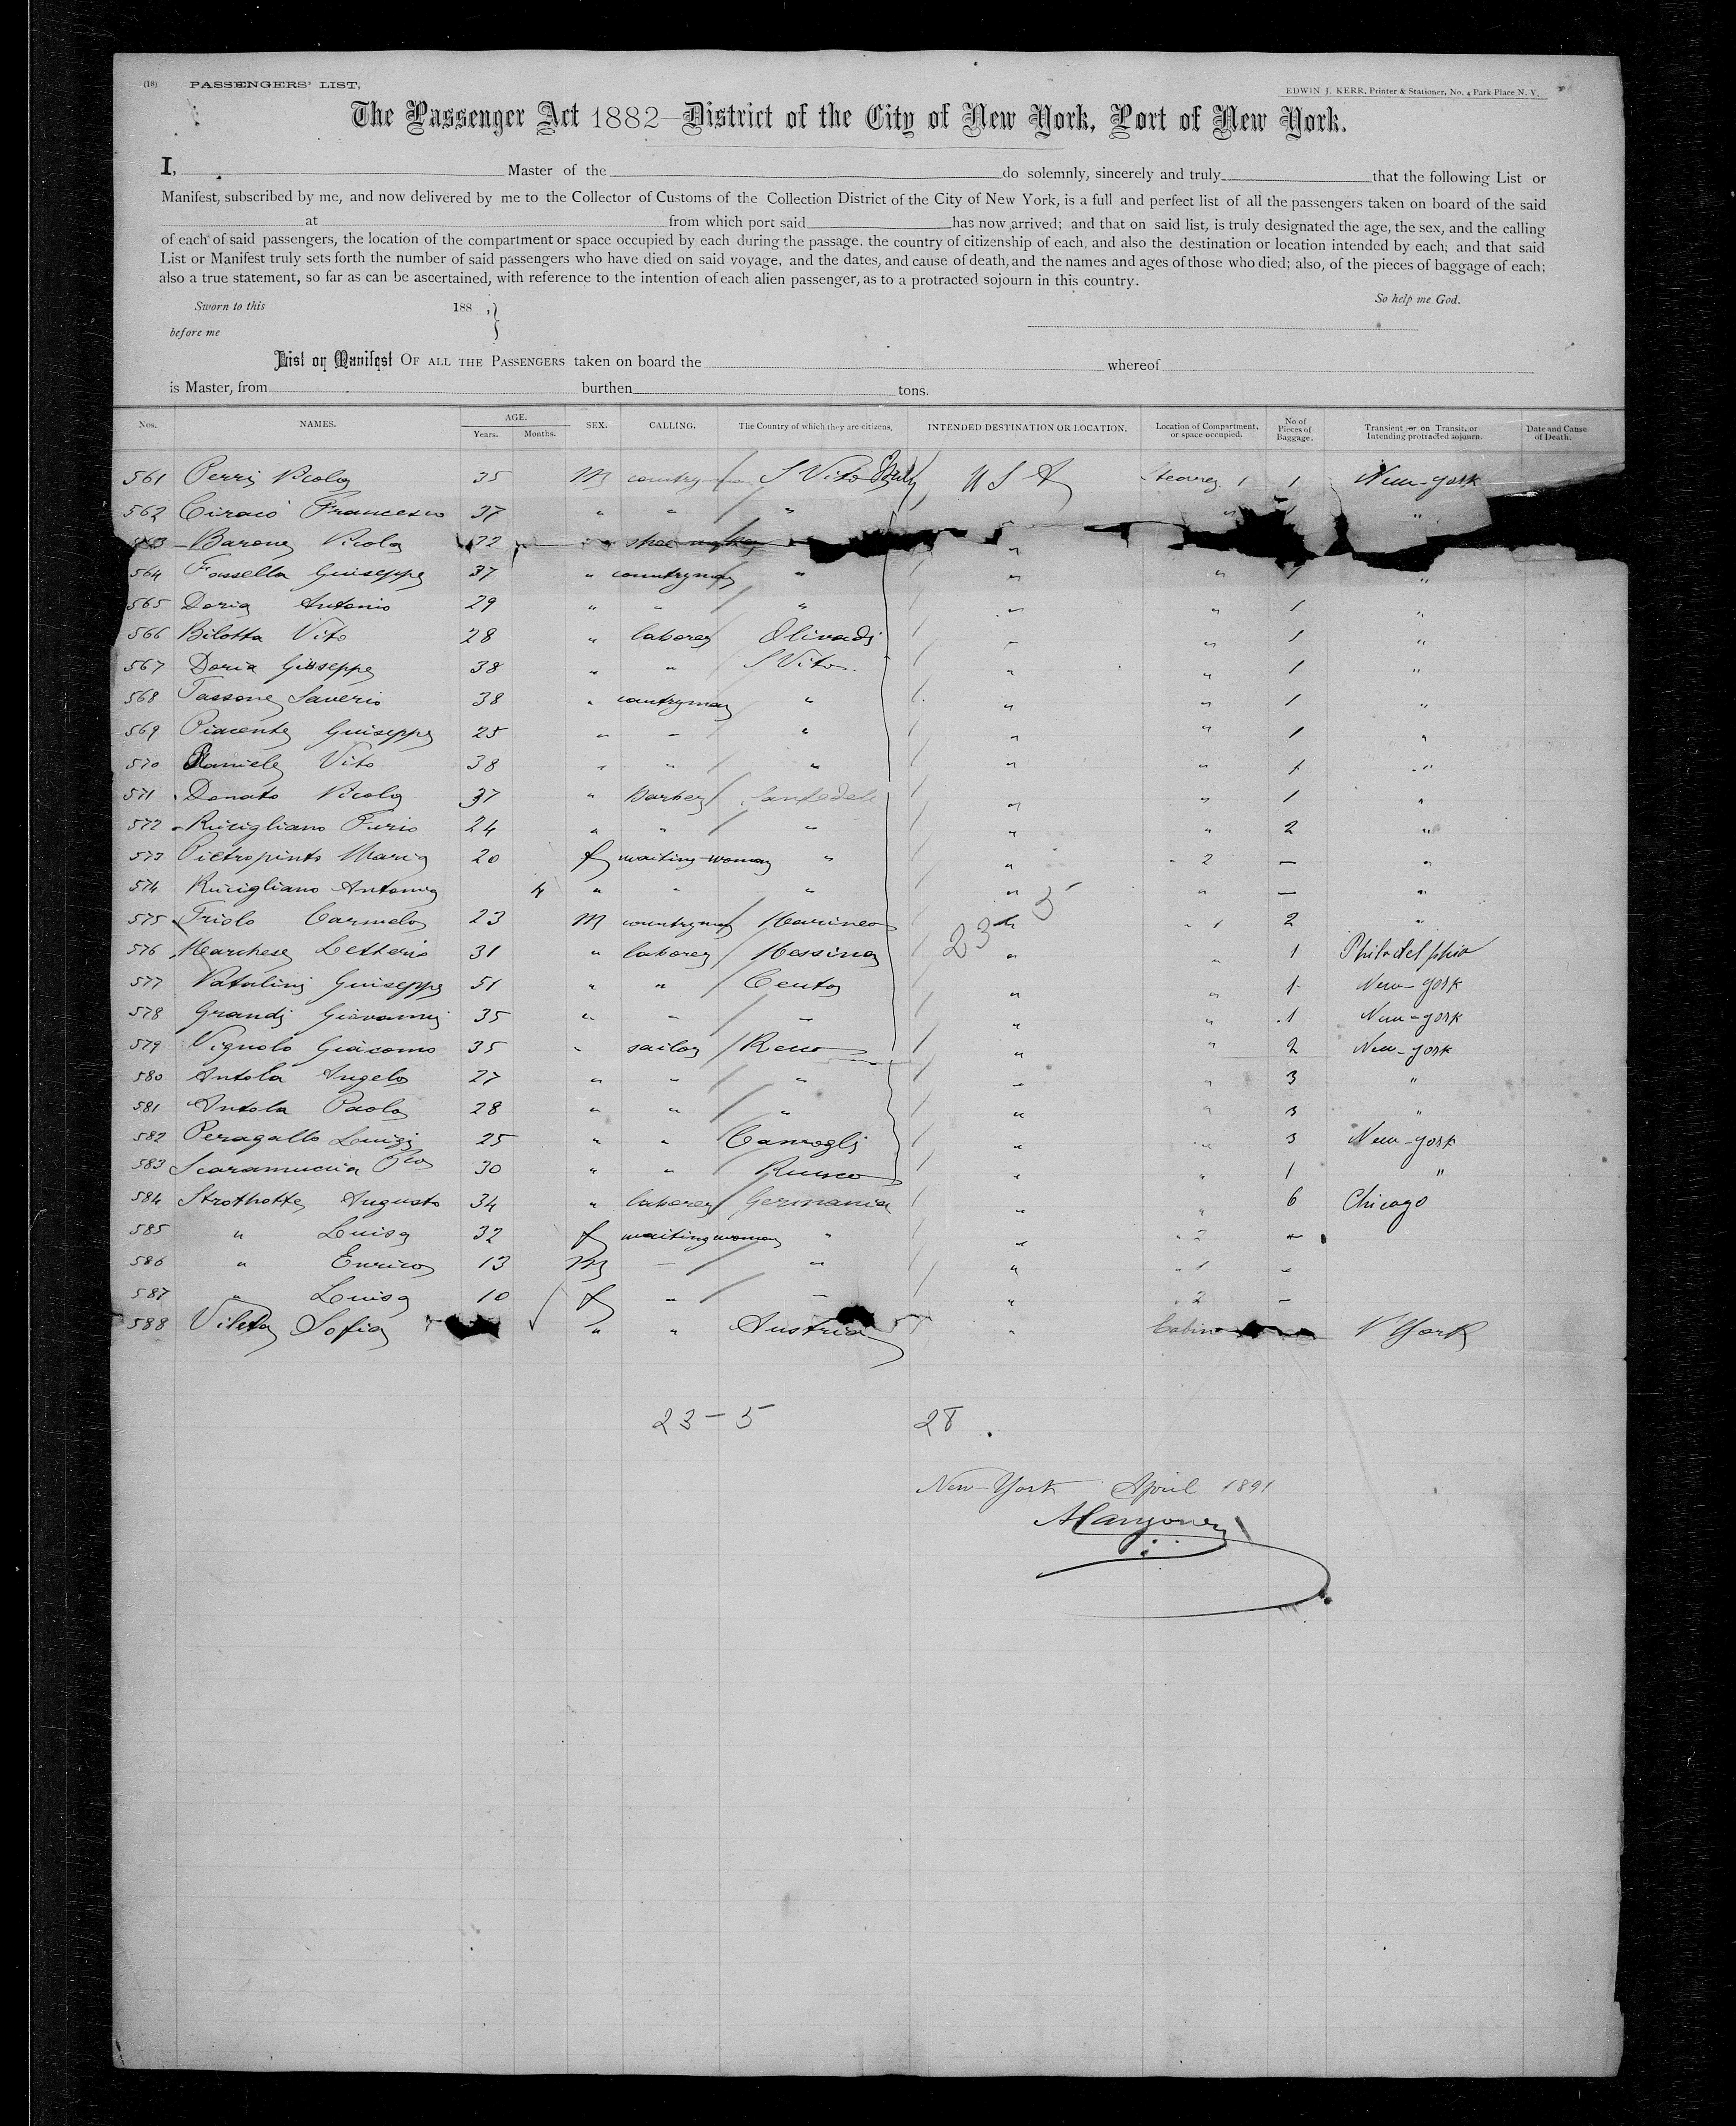 (18) PASSENGERS' LIST,
EDWIN J. KERR, Printer & Stationer, No. 4 Park Place N. Y.
The Passenger Act 1882—District of the City of New York, Port of New York.
I, Master of the do solemnly, sincerely and truly that the following List or
Manifest, subscribed by me, and now delivered by me to the Collector of Customs of the Collection District of the City of New York, is a full and perfect list of all the passengers taken on board of the said
at from which port said has now arrived; and that on said list, is truly designated the age, the sex, and the calling
of each of said passengers, the location of the compartment or space occupied by each during the passage. the country of citizenship of each, and also the destination or location intended by each; and that said
List or Manifest truly sets forth the number of said passengers who have died on said voyage, and the dates, and cause of death, and the names and ages of those who died; also, of the pieces of baggage of each;
also a true statement, so far as can be ascertained, with reference to the intention of each alien passenger, as to a protracted sojourn in this country.
Sworn to this 188 , } So help me God.
before me
List or Manifest OF ALL THE PASSENGERS taken on board the whereof
is Master, from burthen tons.
Nos. NAMES. AGE. Years. Months. SEX. CALLING. The Country of which they are citizens. INTENDED DESTINATION OR LOCATION. Location of Compartment, or space occupied. No of Pieces of Baggage. Transient or on Transit, or Intending protracted sojourn. Date and Cause of Death.
561 Perri Nicola 35 M countryman S Vito Italy U S A Steerage 1 1 New-York
562 Ciraio Francesco 37 " " " " "
Barone Nicola 32 " shoe maker "
564 Fassella Guiseppe 37 " countryman " " " 1 "
565 Doria Antonio 29 " " " " " 1 "
566 Bilotta Vito 28 " laborer Olivadi " " 1 "
567 Doria Giuseppe 38 " " S Vito " " 1 "
568 Tassone Saverio 38 " countryman " " " 1 "
569 Piacente Guiseppe 25 " " " " " 1 "
570 Daniele Vito 38 " " " " " 1 "
571 Donato Nicola 37 " Barber " " 1 "
572 Ricigliano Furio 24 " " " " " 2 "
573 Pietropinto Maria 20 f waiting-woman " " " 2 — "
574 Ricigliano Antonia 4 " " " " " — "
575 Triolo Carmelo 23 M countryman Marineo " " 1 2 "
576 Marchese Letterio 31 " laborer Messina " " 1 Philadelphia
577 Natalini Guiseppe 51 " " Cento " " 1 New-York
578 Grandi Giovanni 35 " " " " " 1 New-York
579 Vignolo Giacomo 35 " sailor Recco " " 2 New-York
580 Antola Angelo 27 " " " " " 3 "
581 Antola Paolo 28 " " " " " 3 "
582 Peragallo Luigi 25 " " Camogli " " 3 New-York
583 Scaramuccia 30 " " " " 1 "
584 Strothotte Augusto 34 " laborer Germania " " 6 Chicago
585 " Luisa 32 f waiting woman " " " 2 —
586 " Enrico 13 M — " " " 1 —
587 " Luisa 10 f " " " " 2 —
588 Sofia " " Austria " Cabin N York
23 5
23 - 5 28.
New-York April 1891